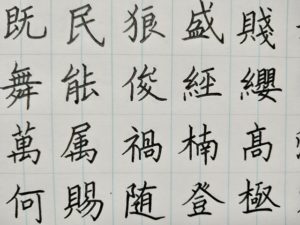 既 民 狼 盛 賤
舞 能 俊 經 纓
萬 属 禍 楠 高
何 賜 随 登 極